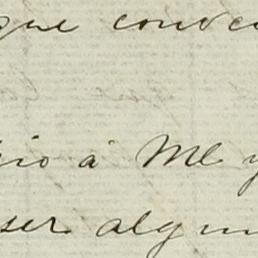 que conve
io à Me y
ser algun